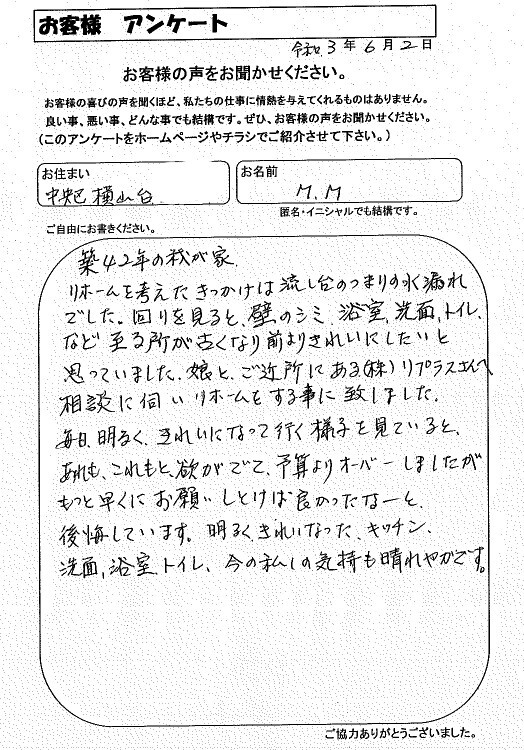 お客様 アンケート
令和 3 年 6 月 2 日
お客様の声をお聞かせください。
お客様の喜びの声を聞くほど、私たちの仕事に情熱を与えてくれるものはありません。
良い事、悪い事、どんな事でも結構です。ぜひ、お客様の声をお聞かせください。
(このアンケートをホームページやチラシでご紹介させて下さい。)
お住まい
中央区横山台
お名前
M.M
匿名・イニシャルでも結構です。
ご自由にお書きください。
築42年の我が家.
リホームを考えたきっかけは流し台のつまりの水漏れ
でした。回りを見ると、壁のシミ、浴室,洗面,トイレ、
など至る所が古くなり前よりきれいにしたいと
思っていました、娘と、ご近所にある(株)リプラスさんへ
相談に伺いリホームをする事に致しました。
毎日、明るく、きれいになって行く様子を見ていると、
あれも、これもと、欲がでて、予算よりオーバーしましたが
もっと早くにお願いしとけば良かったなーと、
後悔しています。明るくきれいなった、キッチン、
洗面,浴室,トイレ、今の私しの気持も晴れやかです。
ご協力ありがとうございました。